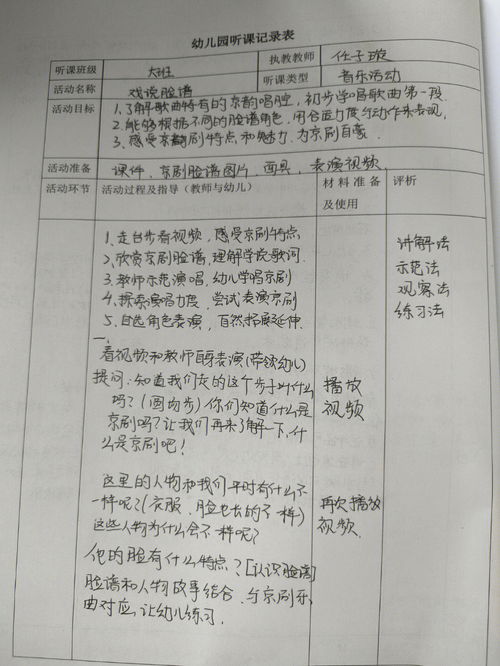 幼儿园听课记录表
听课班级 大班 执教教师 任子璇
听课类型 音乐活动
活动名称 戏说脸谱
活动目标 1、了解歌曲特有的京韵唱腔,初步学唱歌曲第一段
2、能够根据不同的脸谱角色,用合适力度与动作来表现
3、感受京剧特点和魅力,为京剧自豪
活动准备 课件、京剧脸谱图片、面具、表演视频
活动环节 活动过程及指导(教师与幼儿) 材料准备及使用 评析
1、走台步看视频,感受京剧特点
2、欣赏京剧脸谱,理解学院歌词
3、教师示范演唱,幼儿学唱京剧
4、探索演唱力度,尝试表演京剧
5、自选角色表演,自然拓展延伸
讲解法
示范法
观察法
练习法
一、
看视频和教师表演(带领幼儿)
提问:知道我们走的这个步子叫什么
吗?(圆场步)你们知道什么是
京剧吗?让我们再来了解一下,什
么是京剧吧!
播放
视频
这里的人物和我们平时有什么不
一样呢?(衣服、脸也长的不一样)
这些人物为什么会不一样呢?
再次播放
视频
他的脸有什么特点?[认识脸谱]
脸谱和人物故事结合,与京剧乐
曲对应,让幼儿练习.